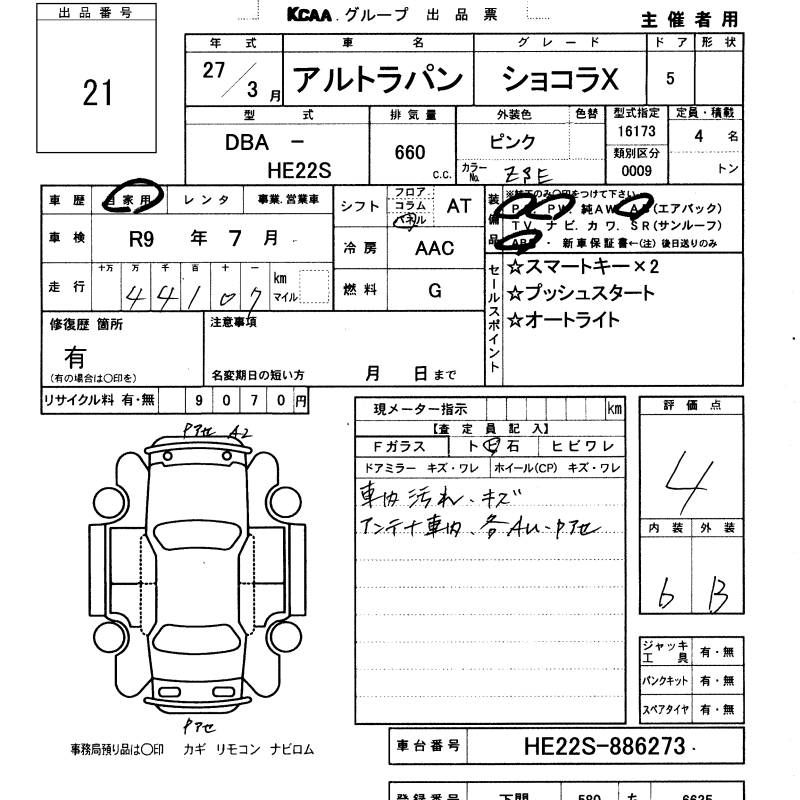 出品番号
21
KCAA.グループ 出品票
主催者用
年式 車名 グレード ドア 形状
27/3月 アルトラパン ショコラX 5
型式 排気量 外装色 色替 型式指定 定員・積載
DBA -
HE22S
660
c.c.
ピンク
カラーNo.
16173
類別区分
0009
4 名
トン
車歴 自家用 レンタ 事業.営業車
車検 R9 年 7 月
走行 十万 万 千 百 十 一
4 4 1 0 7
km
マイル
シフト
フロア
コラム
パネル
AT
冷房 AAC
燃料 G
装備品
※純正のみ〇印をつけて下さい
PS. PW. 純AW. AB(エアバック)
TV. ナビ. カワ. SR(サンルーフ)
ABS・ 新車保証書←(注) 後日送りのみ
セールスポイント
☆スマートキー×2
☆プッシュスタート
☆オートライト
修復歴 箇所
有
(有の場合は〇印を)
注意事項
名変期日の短い方 月 日まで
リサイクル料 有・無 9070円
現メーター指示 km
【査定員記入】
Fガラス ト ビ 石 ヒビワレ
ドアミラー キズ・ワレ ホイール(CP) キズ・ワレ
車内汚れ、キズ
アンテナ車内、各AU・Pアセ
評価点
4
内装 外装
b B
Pアセ A2
Pアセ
事務局預り品は〇印 カギ リモコン ナビロム
ジャッキ工具 有・無
パンクキット 有・無
スペアタイヤ 有・無
車台番号 HE22S-886273.
登録番号 下関 580 6625